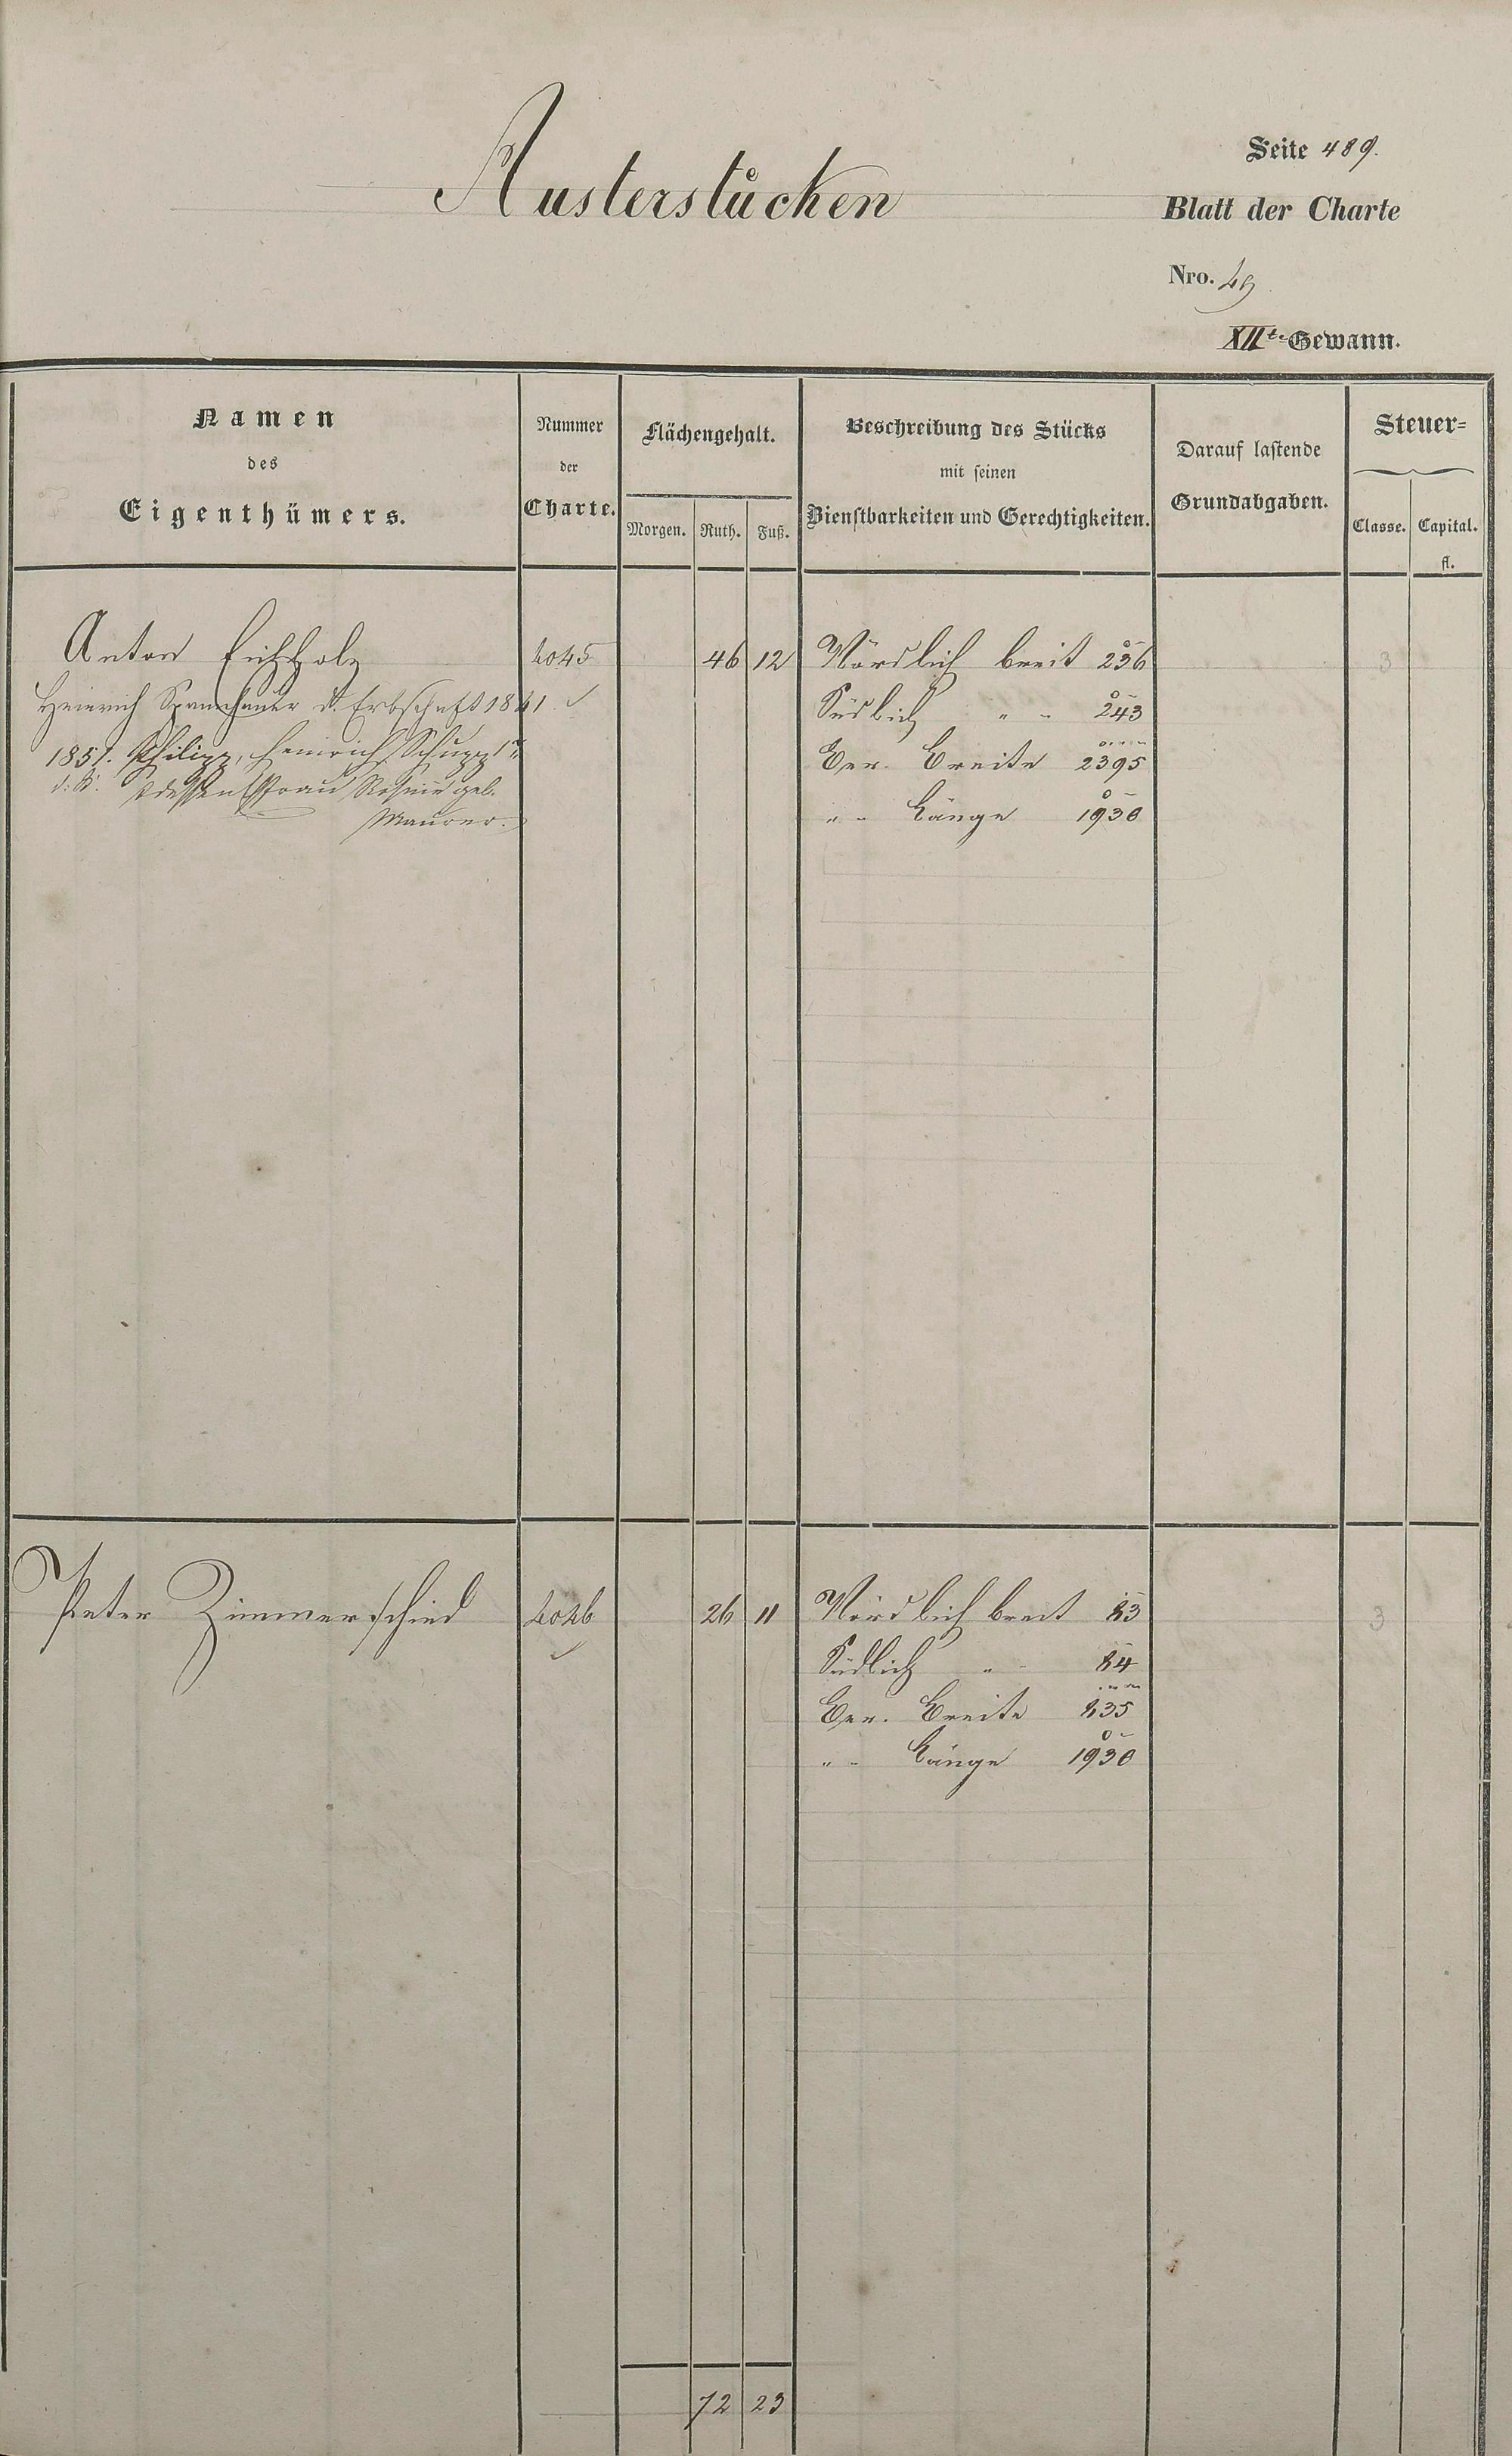 Austerstücken
Seite 489.
Blatt der Charte
Nro. 49
XIIte Gewann.
Namen
des
Eigenthümers.
Nummer
der
Charte.
Flächengehalt.
Morgen. Ruth. Fuß.
Beschreibung des Stücks
mit seinen
Dienstbarkeiten und Gerechtigkeiten.
Darauf lastende
Grundabgaben.
Steuer=
Classe. Capital.
fl.
Anton Eichholz 4045 46 12 Nördlich breit 236 3
Heinrich Spannhauer d. Erbschaft 1841. Südlich " - 243
1851. Philipp, Heinrich Schupp 1r Ver. Breite 2395
d. K. dessen Frau Rosine geb. " - Länge 1930
Maurer.
Peter Zimmerschied 4046 26 11 Nördlich breit 83 3
Südlich " - 84
Ver. Breite 835
" - Länge 1930
72 23